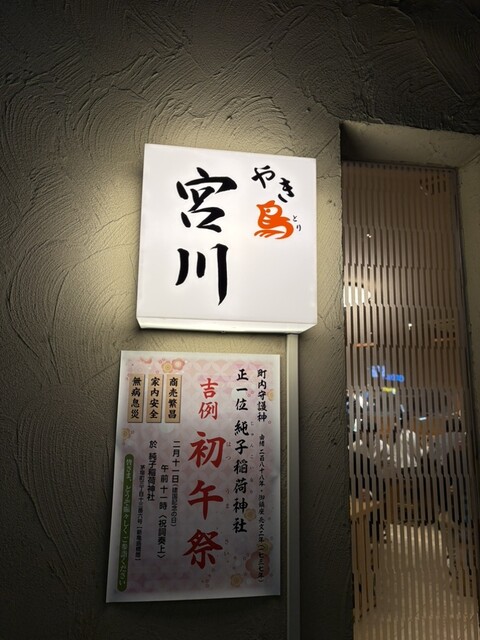 やき鳥
とり
宮川
町内守護神
正一位 純子稲荷神社
吉例 初午祭
二月十一日(建国記念の日)
午前十一時(祝詞奏上)
於 純子稲荷神社
商売繁昌
家内安全
無病息災